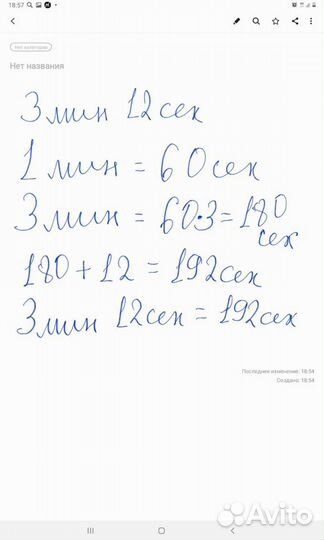 18:57
Нет категории
Нет названия
3 мин 12 сек
1 мин = 60 сек
3 мин = 60·3 = 180
сек
180 + 12 = 192 сек
3 мин 12 сек = 192 сек
Последнее изменение: 18:54
Создано: 18:54
Avito